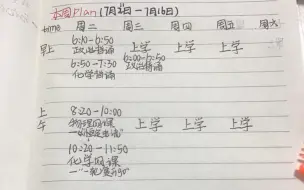 本周Plan(7月12日-7月16日)
时间 周二 周三 周四 周五 周六
早上 6:10-6:50 上学 上学 上学
政治背诵 6:00-6:50
6:50-7:30 政治背诵
化学背诵
上午 8:20-10:00
物理网课 上学 上学 上学
10:20-11:50
化学网课